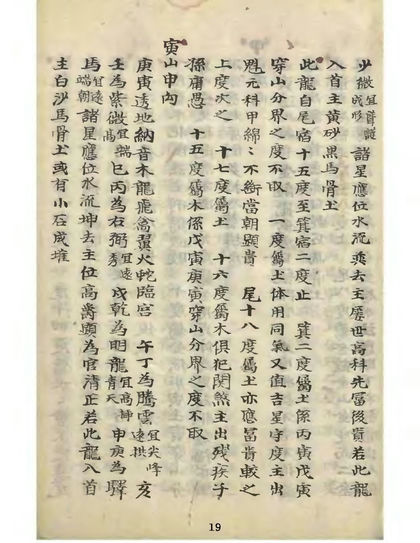 少微宜聳諸星應位水流乘去主歷世高科先富後貴若此龍
入首主黃砂黑馬骨土
此龍自尾宿十五度至箕宿二度止 箕二度屬土係丙寅戊寅
穿山分界之度不取 一度屬土体用同氣又值吉星守度主出
魁元科甲綿綿不衰當朝顯貴 尾十八度屬土亦應富貴較之
上度次之 十七度屬土 十六度屬木俱犯關煞主出殘疾子
孫庸愚 十五度屬木係戊寅庚寅穿山分界之度不取
寅山申向
庚寅透地納音木龍飛禽翼火蛇臨宮 午丁為騰雲宜尖峰遠拱亥
壬為紫微宜端高巳丙為右弼宜遠秀戌乾為明龍宜高聳青天申庚為驛
馬宜遠端朝諸星應位水流坤去主位高爵顯為官清正若此龍入首
主白沙馬骨土或有小石成堆
19